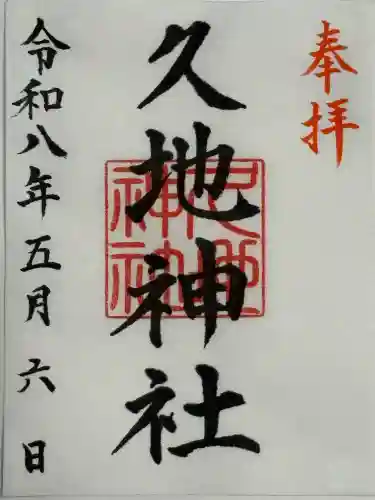 奉拝
久地神社
久地神社
令和八年五月六日